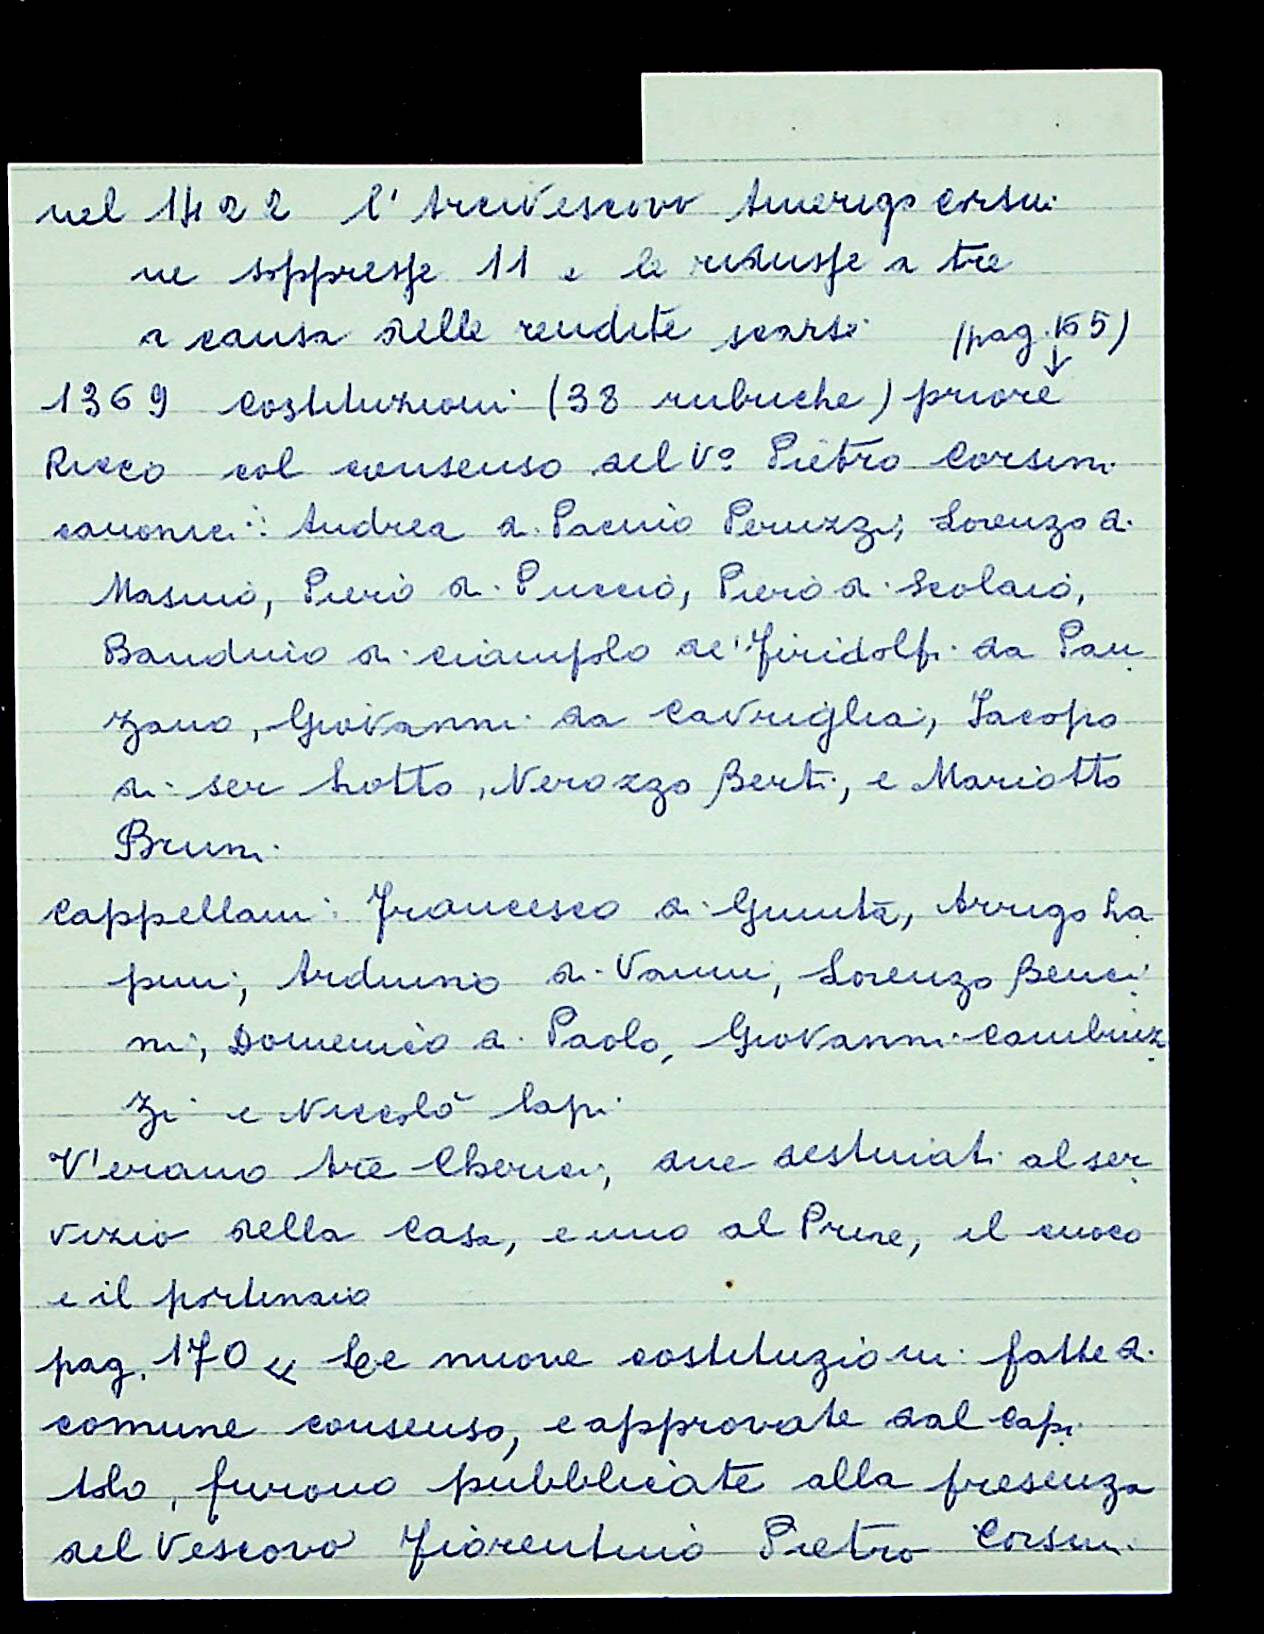 nel 1422 l'Arcivescovo Amerigo Corsini
ne soppresse 11 e le ridusse a tre
a causa delle rendite scarse (pag. 165)
1369 Costituzioni (38 rubriche) priore
Ricco col consenso del Vº Pietro Corsini
canonici: Andrea di Pacino Peruzzi; Lorenzo di
Masino, Piero di Puccio, Piero di Scolaio,
Banduio di Ciampolo de' Firidolfi da Pan
zano, Giovanni da Cavriglia, Jacopo
di ser Lotto, Nerozzo Berti, e Mariotto
Bruni
Cappellani: Francesco di Giunta, Arrigo La
pini, Arduino di Vanni, Lorenzo Benci
ni, Domenico di Paolo, Giovanni Cambiuz
zi e Niccolò Lapi
V'erano tre Cherici, due destinati al ser
vizio della Casa, e uno al Priore, il cuoco
e il portinaio
pag. 170 « Le nuove costituzioni fatte di
comune consenso, e approvate dal Capi
tolo, furono pubblicate alla presenza
del Vescovo Fiorentino Pietro Corsini